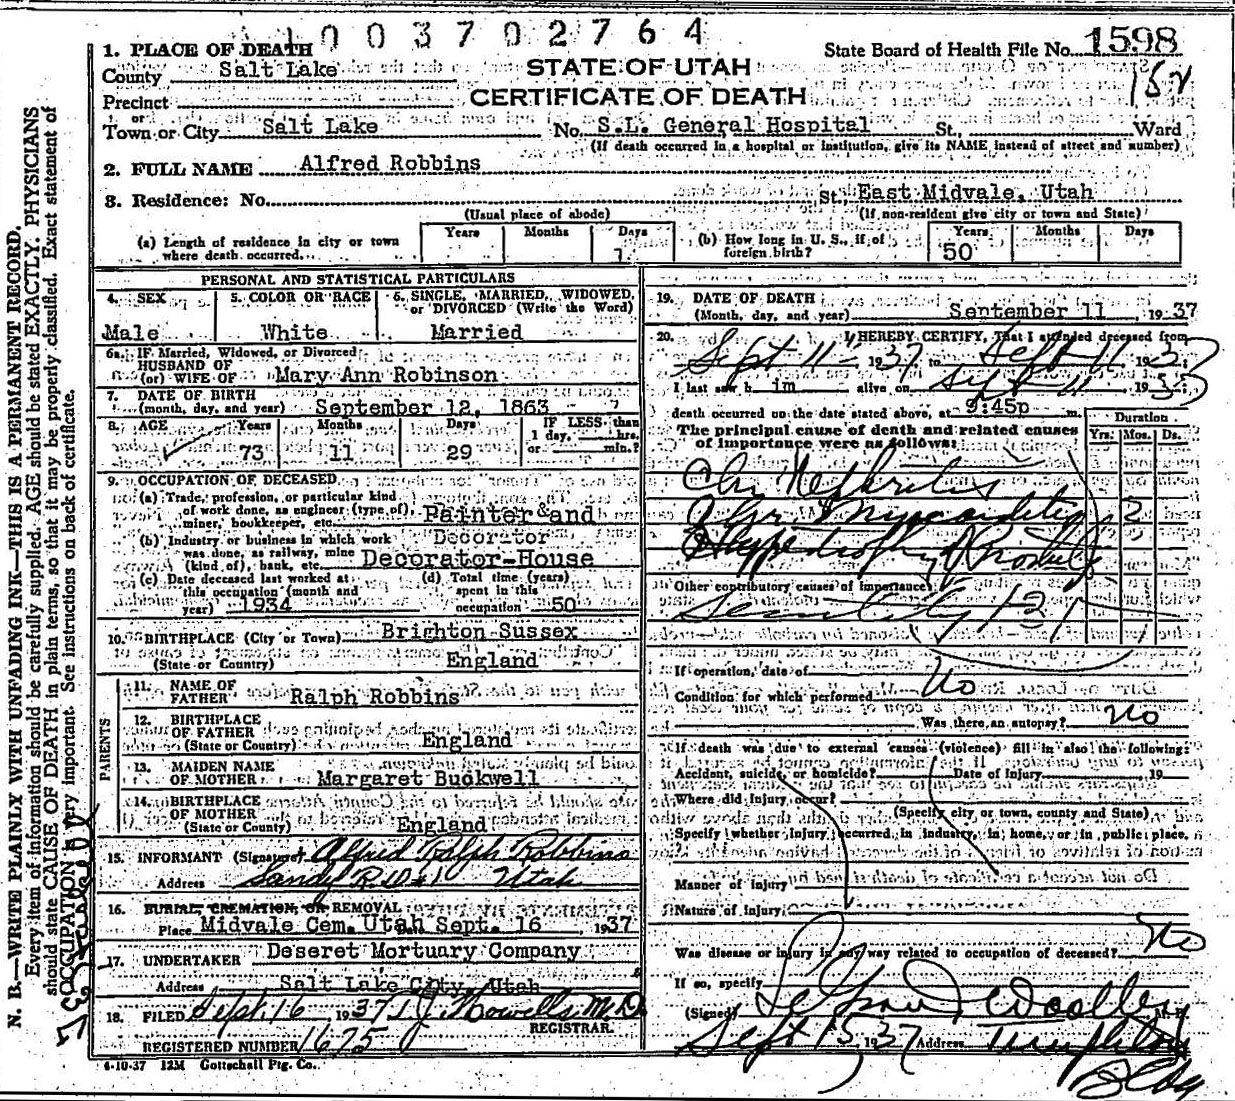 1003702764
1. PLACE OF DEATH
State Board of Health File No. 1598
County Salt Lake
STATE OF UTAH
152
Precinct
CERTIFICATE OF DEATH
or
Town or City Salt Lake No. S.L. General Hospital St., Ward
(If death occurred in a hospital or institution, give its NAME instead of street and number)
2. FULL NAME Alfred Robbins
3. Residence: No. St., East Midvale, Utah
(Usual place of abode) (If non-resident give city or town and State)
(a) Length of residence in city or town where death occurred Years Months Days 1
(b) How long in U. S., if of foreign birth? Years 50 Months Days
PERSONAL AND STATISTICAL PARTICULARS
4. SEX Male
5. COLOR OR RACE White
6. SINGLE, MARRIED, WIDOWED, or DIVORCED (Write the Word) Married
6a. IF Married, Widowed, or Divorced
HUSBAND OF
(or) WIFE OF Mary Ann Robinson
7. DATE OF BIRTH
(month, day, and year) September 12, 1863
8. AGE Years 73 Months 11 Days 29 IF LESS than 1 day, hrs. or min.?
9. OCCUPATION OF DECEASED
(a) Trade, profession, or particular kind
of work done, as engineer (type of),
miner, bookkeeper, etc. Painter & and
Decorator
(b) Industry or business in which work
was done, as railway, mine
(kind of), bank, etc. Decorator-House
(c) Date deceased last worked at
this occupation (month and
year) 1934
(d) Total time (years)
spent in this
occupation 50
10. BIRTHPLACE (City or Town) Brighton Sussex
(State or Country) England
PARENTS
11. NAME OF
FATHER Ralph Robbins
12. BIRTHPLACE
OF FATHER
(State or Country) England
13. MAIDEN NAME
OF MOTHER Margaret Buckwell
14. BIRTHPLACE
OF MOTHER
(State or Country) England
15. INFORMANT (Signature) Alfred Ralph Robbins
Address Sandy R.D #1 Utah
16. BURIAL, CREMATION, OR REMOVAL
Place Midvale Cem. Utah Sept. 16, 1937
17. UNDERTAKER Deseret Mortuary Company
Address Salt Lake City, Utah
18. FILED Sept. 16 1937 M.D.
REGISTRAR.
REGISTERED NUMBER 1675
4-10-37 12M Gottschall Ptg. Co.
19. DATE OF DEATH
(Month, day, and year) September 11, 1937
20. I HEREBY CERTIFY, That I attended deceased from
Sept 11 - 1937 to Sept 11 1937
I last saw him alive on Sept 11 19
death occurred on the date stated above, at 9:45p m.
The principal cause of death and related causes
of importance were as follows:
Duration
Yrs. Mos. Ds.
Chr Nephritis
Myocarditis 2
Hypertrophy of Prostate
Other contributory causes of importance:
Senility 131
If operation, date of No
Condition for which performed
Was there an autopsy? No
If death was due to external causes (violence) fill in also the following:
Accident, suicide, or homicide? Date of injury 19
Where did injury occur?
(Specify city or town, county and State)
Specify whether injury occurred in industry, in home, or in public place.
Manner of injury
Nature of injury
Was disease or injury in any way related to occupation of deceased? No
If so, specify
(Signed) Woolley M. D.
Sept 15, 1937 Address Templeton
Bldg
N. B.—WRITE PLAINLY WITH UNFADING INK—THIS IS A PERMANENT RECORD.
Every item of information should be carefully supplied. AGE should be stated EXACTLY. PHYSICIANS
should state CAUSE OF DEATH in plain terms, so that it may be properly classified. Exact statement of
OCCUPATION is very important. See instructions on back of certificate.